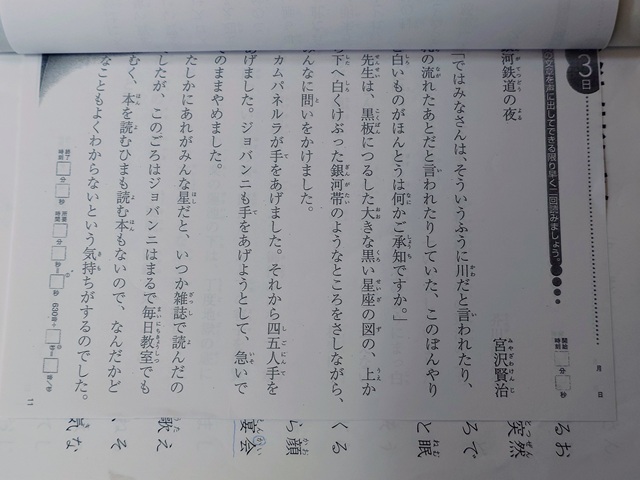 3日
の文章を声に出してできる限り早く二回読みましょう。
月 日
開始時間 分 秒
河鉄道の夜
宮沢賢治
「ではみなさんは、そういうふうに川だと言われたり、
の流れたあとだと言われたりしていた、このぼんやり
と白いものがほんとうは何かご承知ですか。」
先生は、黒板につるした大きな黒い星座の図の、上か
ら下へ白くけぶった銀河帯のようなところをさしながら、
んなに問いをかけました。
カムパネルラが手をあげました。それから四五人手を
あげました。ジョバンニも手をあげようとして、急いで
のままやめました。
たしかにあれがみんな星だと、いつか雑誌で読んだの
したが、このごろはジョバンニはまるで毎日教室でも
むく、本を読むひまも読む本もないので、なんだかど
なこともよくわからないという気持ちがするのでした。
終了時間 分 秒 所要時間 分 秒= 秒 630字÷ 秒= 字/秒
11
るお
突然
ろで
と眠
くる
ら顔
宴会
歌え
そ
気な